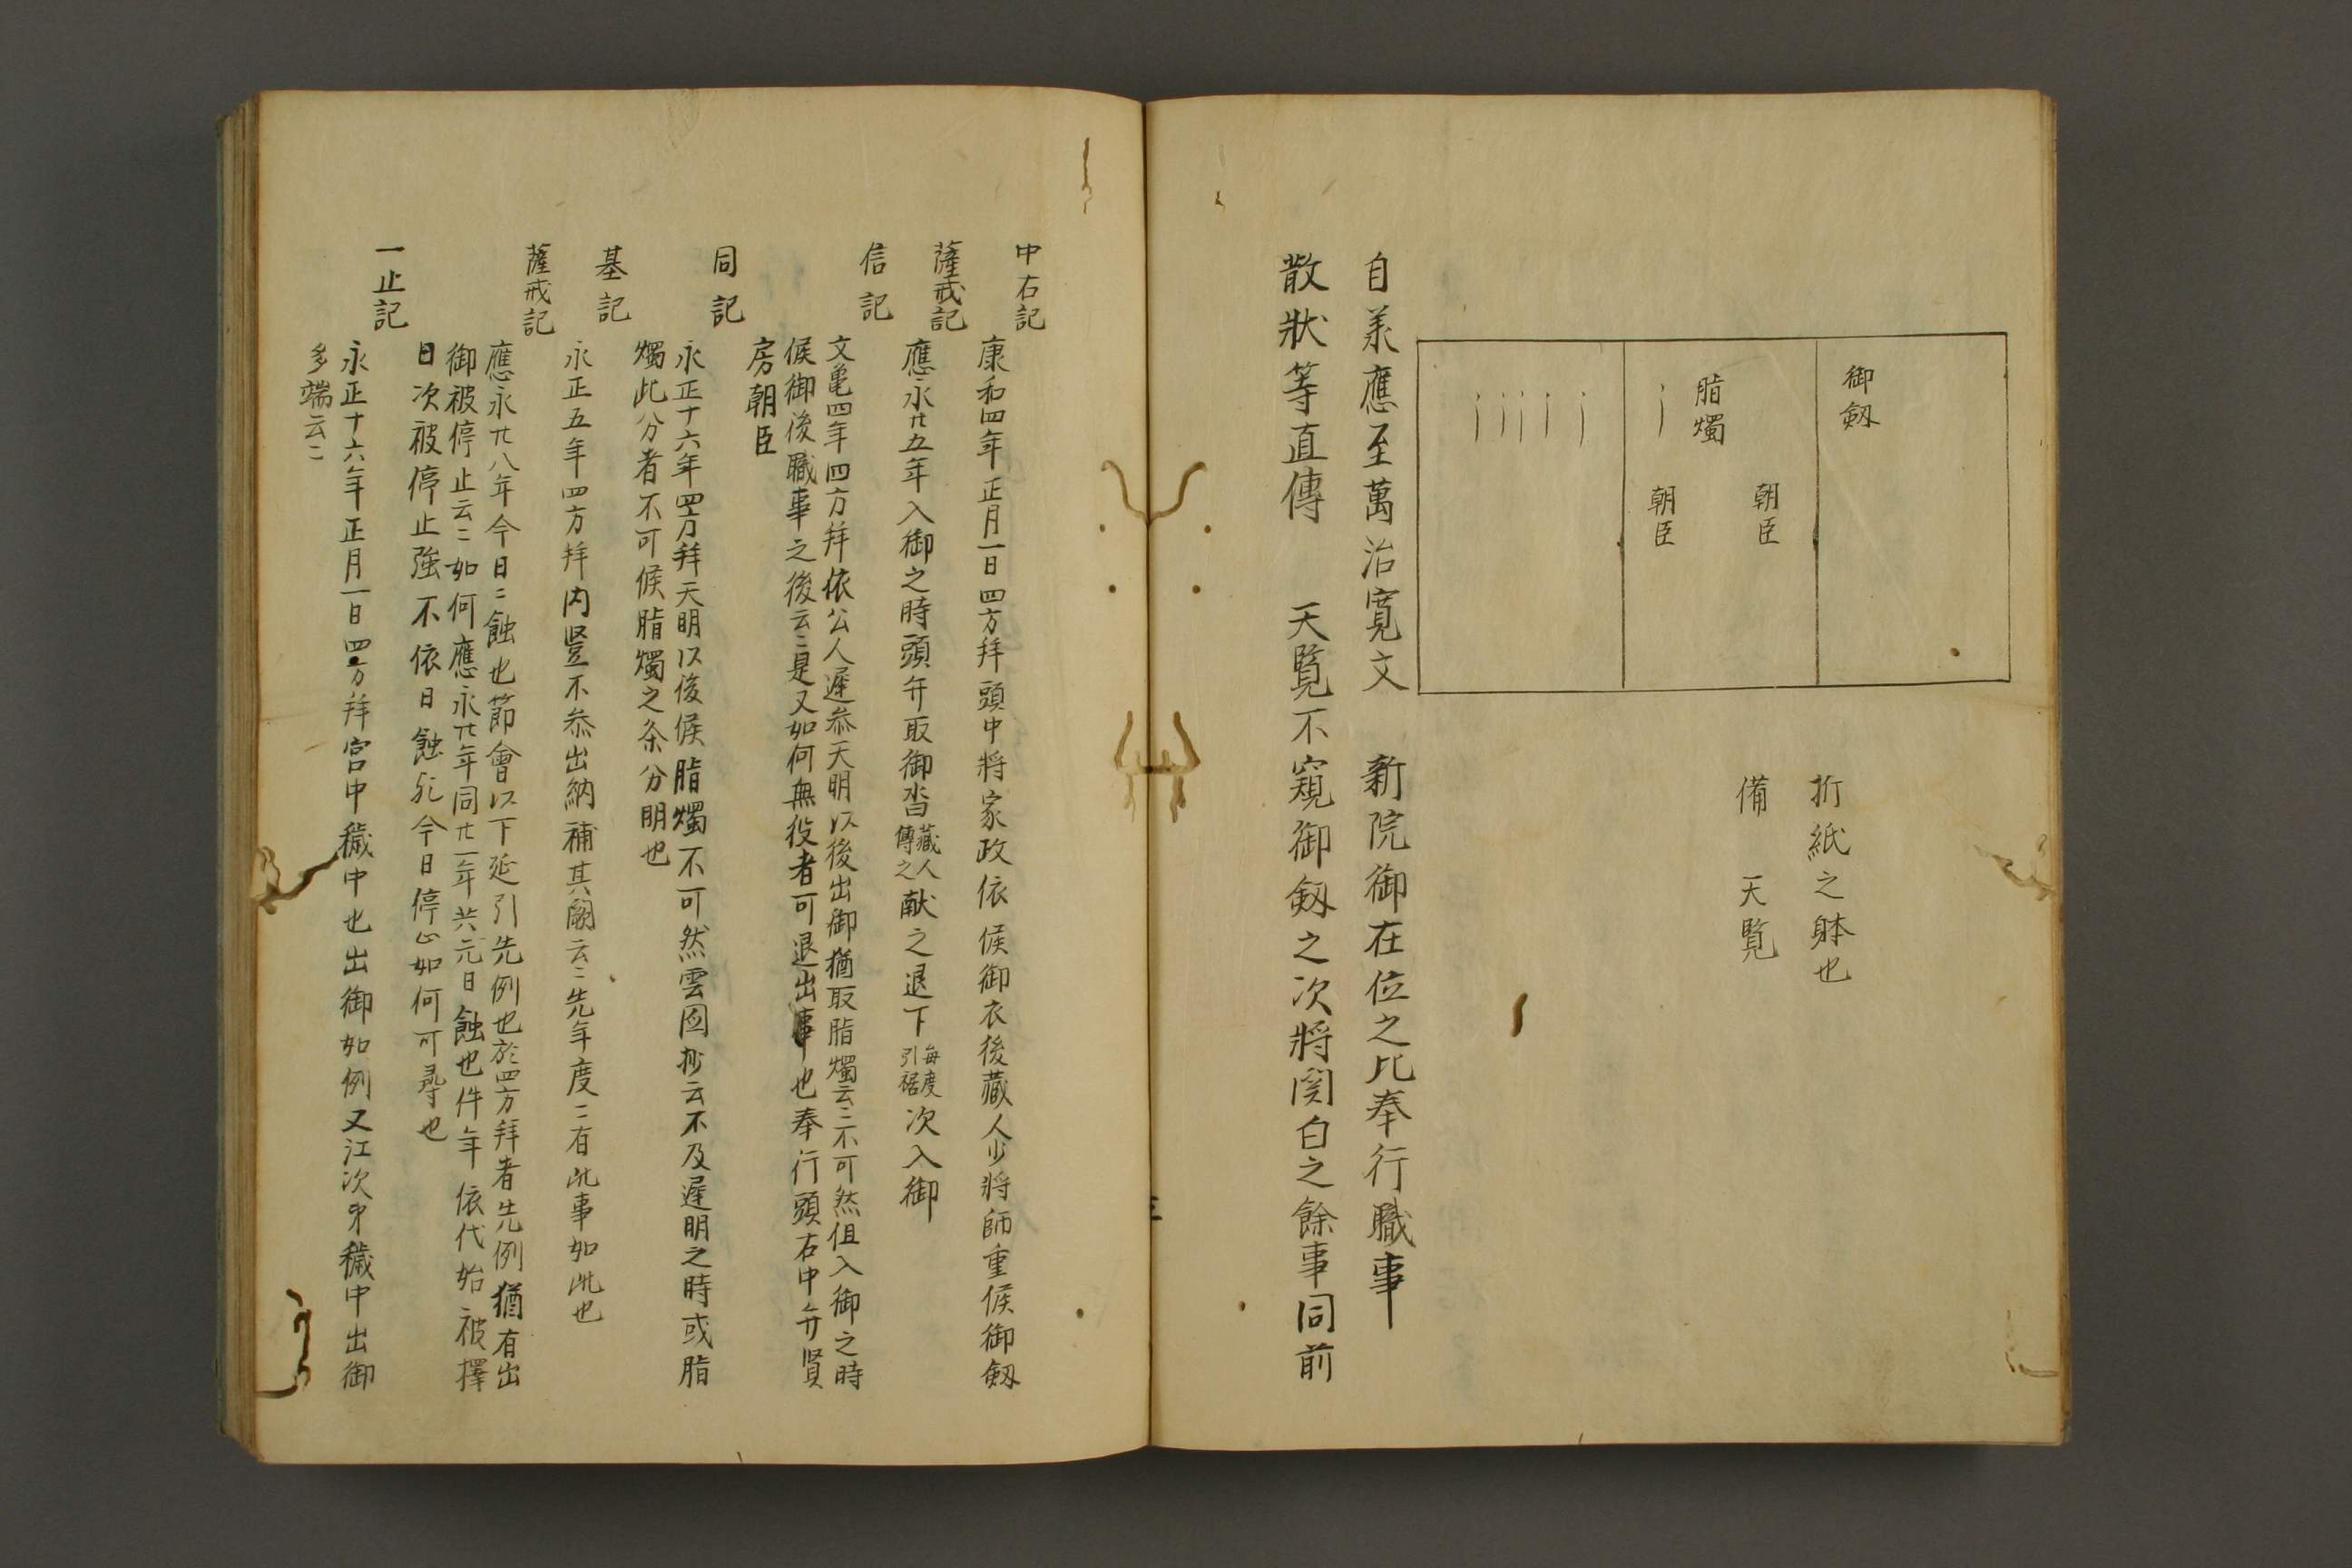 御剱
朝臣
脂燭
朝臣
折紙之躰也
備 天覧
自承應至萬治寛文 新院御在位之比奉行職事
散狀等直傳 天覧不窺御剱之次將関白之餘事同前
中右記
康和四年正月一日四方拜頭中將家政依候御衣後藏人少將師重候御剱
薩戒記
應永廿五年入御之時頭弁取御沓藏人傳之献之退下每度引裾次入御
信記
文亀四年四方拜依公人遅参天明以後出御猶取脂燭云〻不可然但入御之時
候御後職事之後云〻是又如何無役者可退出事也奉行頭右中弁賢
房朝臣
同記
永正十六年四方拜天明以後候脂燭不可然雲図抄云不及遅明之時或脂
燭此分者不可候脂燭之条分明也
基記
永正五年四方拜内豎不参出納補其闕云〻先年度〻有此事如此也
薩戒記
應永廿八年今日〻蝕也節會以下延引先例也於四方拜者先例猶有出
御被停止云〻如何應永廿年同廿一年共元日蝕也件年依代始被擇
日次被停止強不依日蝕 今日停止如何可尋也
一止記
永正十六年正月一日四方拜宮中穢中也出御如例又江次第穢中出御
多端云〻